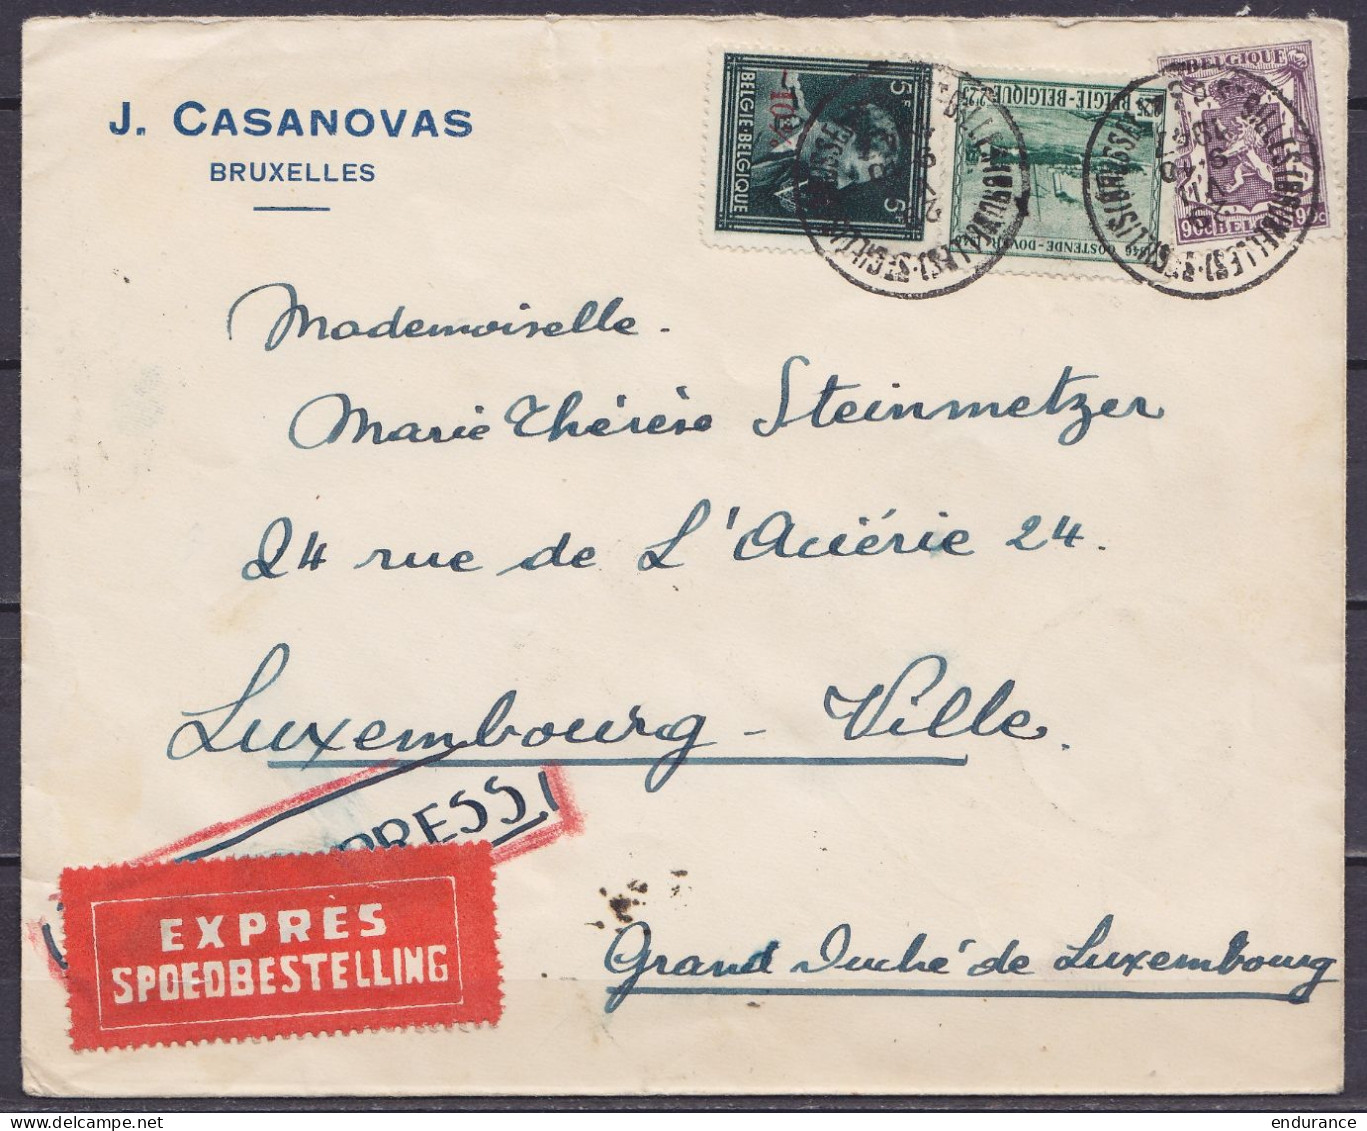 J. CASANOVAS
BRUXELLES
BELGIE-BELGIQUE
5F
5F
-10%
BELGIE-BELGIQUE 2.25
1846 OOSTENDE-DOVER
BELGIQUE
90c BELGIË 90c
Mademoiselle.
Marie Thérèse Steinmetzer
24 rue de L'Aciérie 24.
Luxembourg - Ville.
PRESS
EXPRÈS
SPOEDBESTELLING
Grand Duché de Luxembourg
endurance